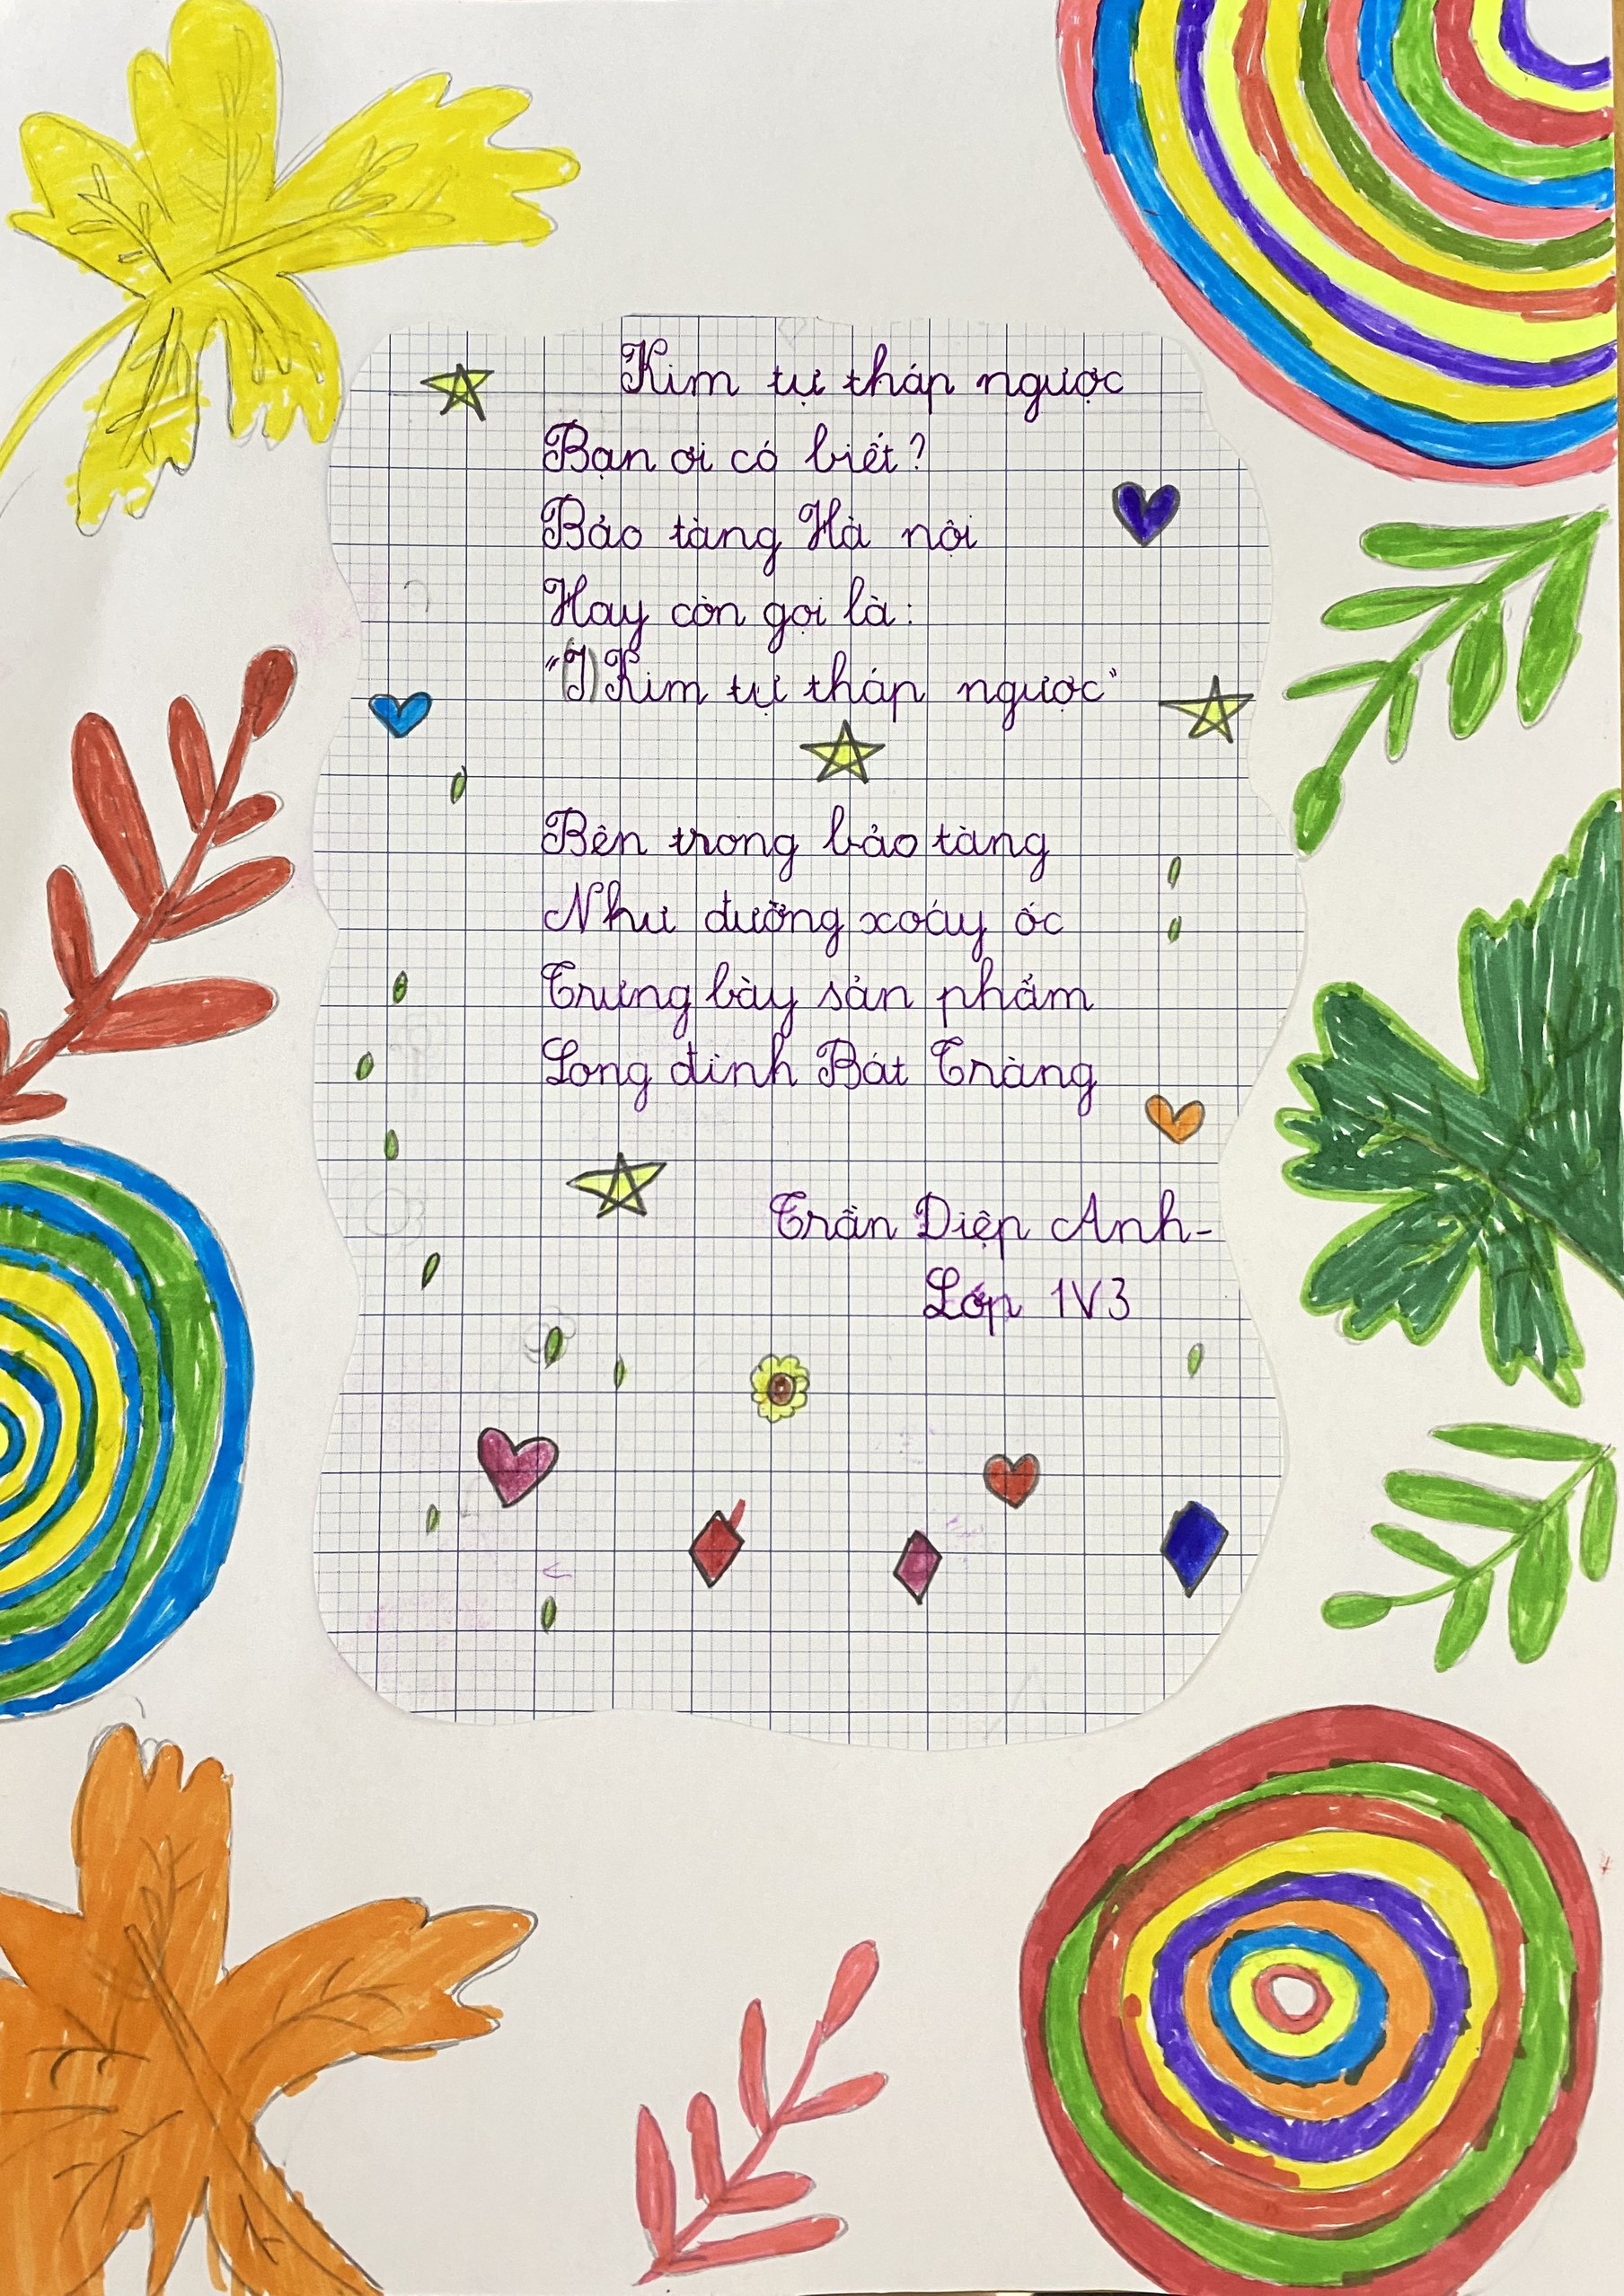 Kim tự tháp ngược
Bạn ơi có biết?
Bảo tàng Hà nội
Hay còn gọi là:
"Kim tự tháp ngược"
Bên trong bảo tàng
Như đường xoáy ốc
Trưng bày sản phẩm
Long đình Bát Tràng
Trần Diệp Anh-
Lớp 1V3